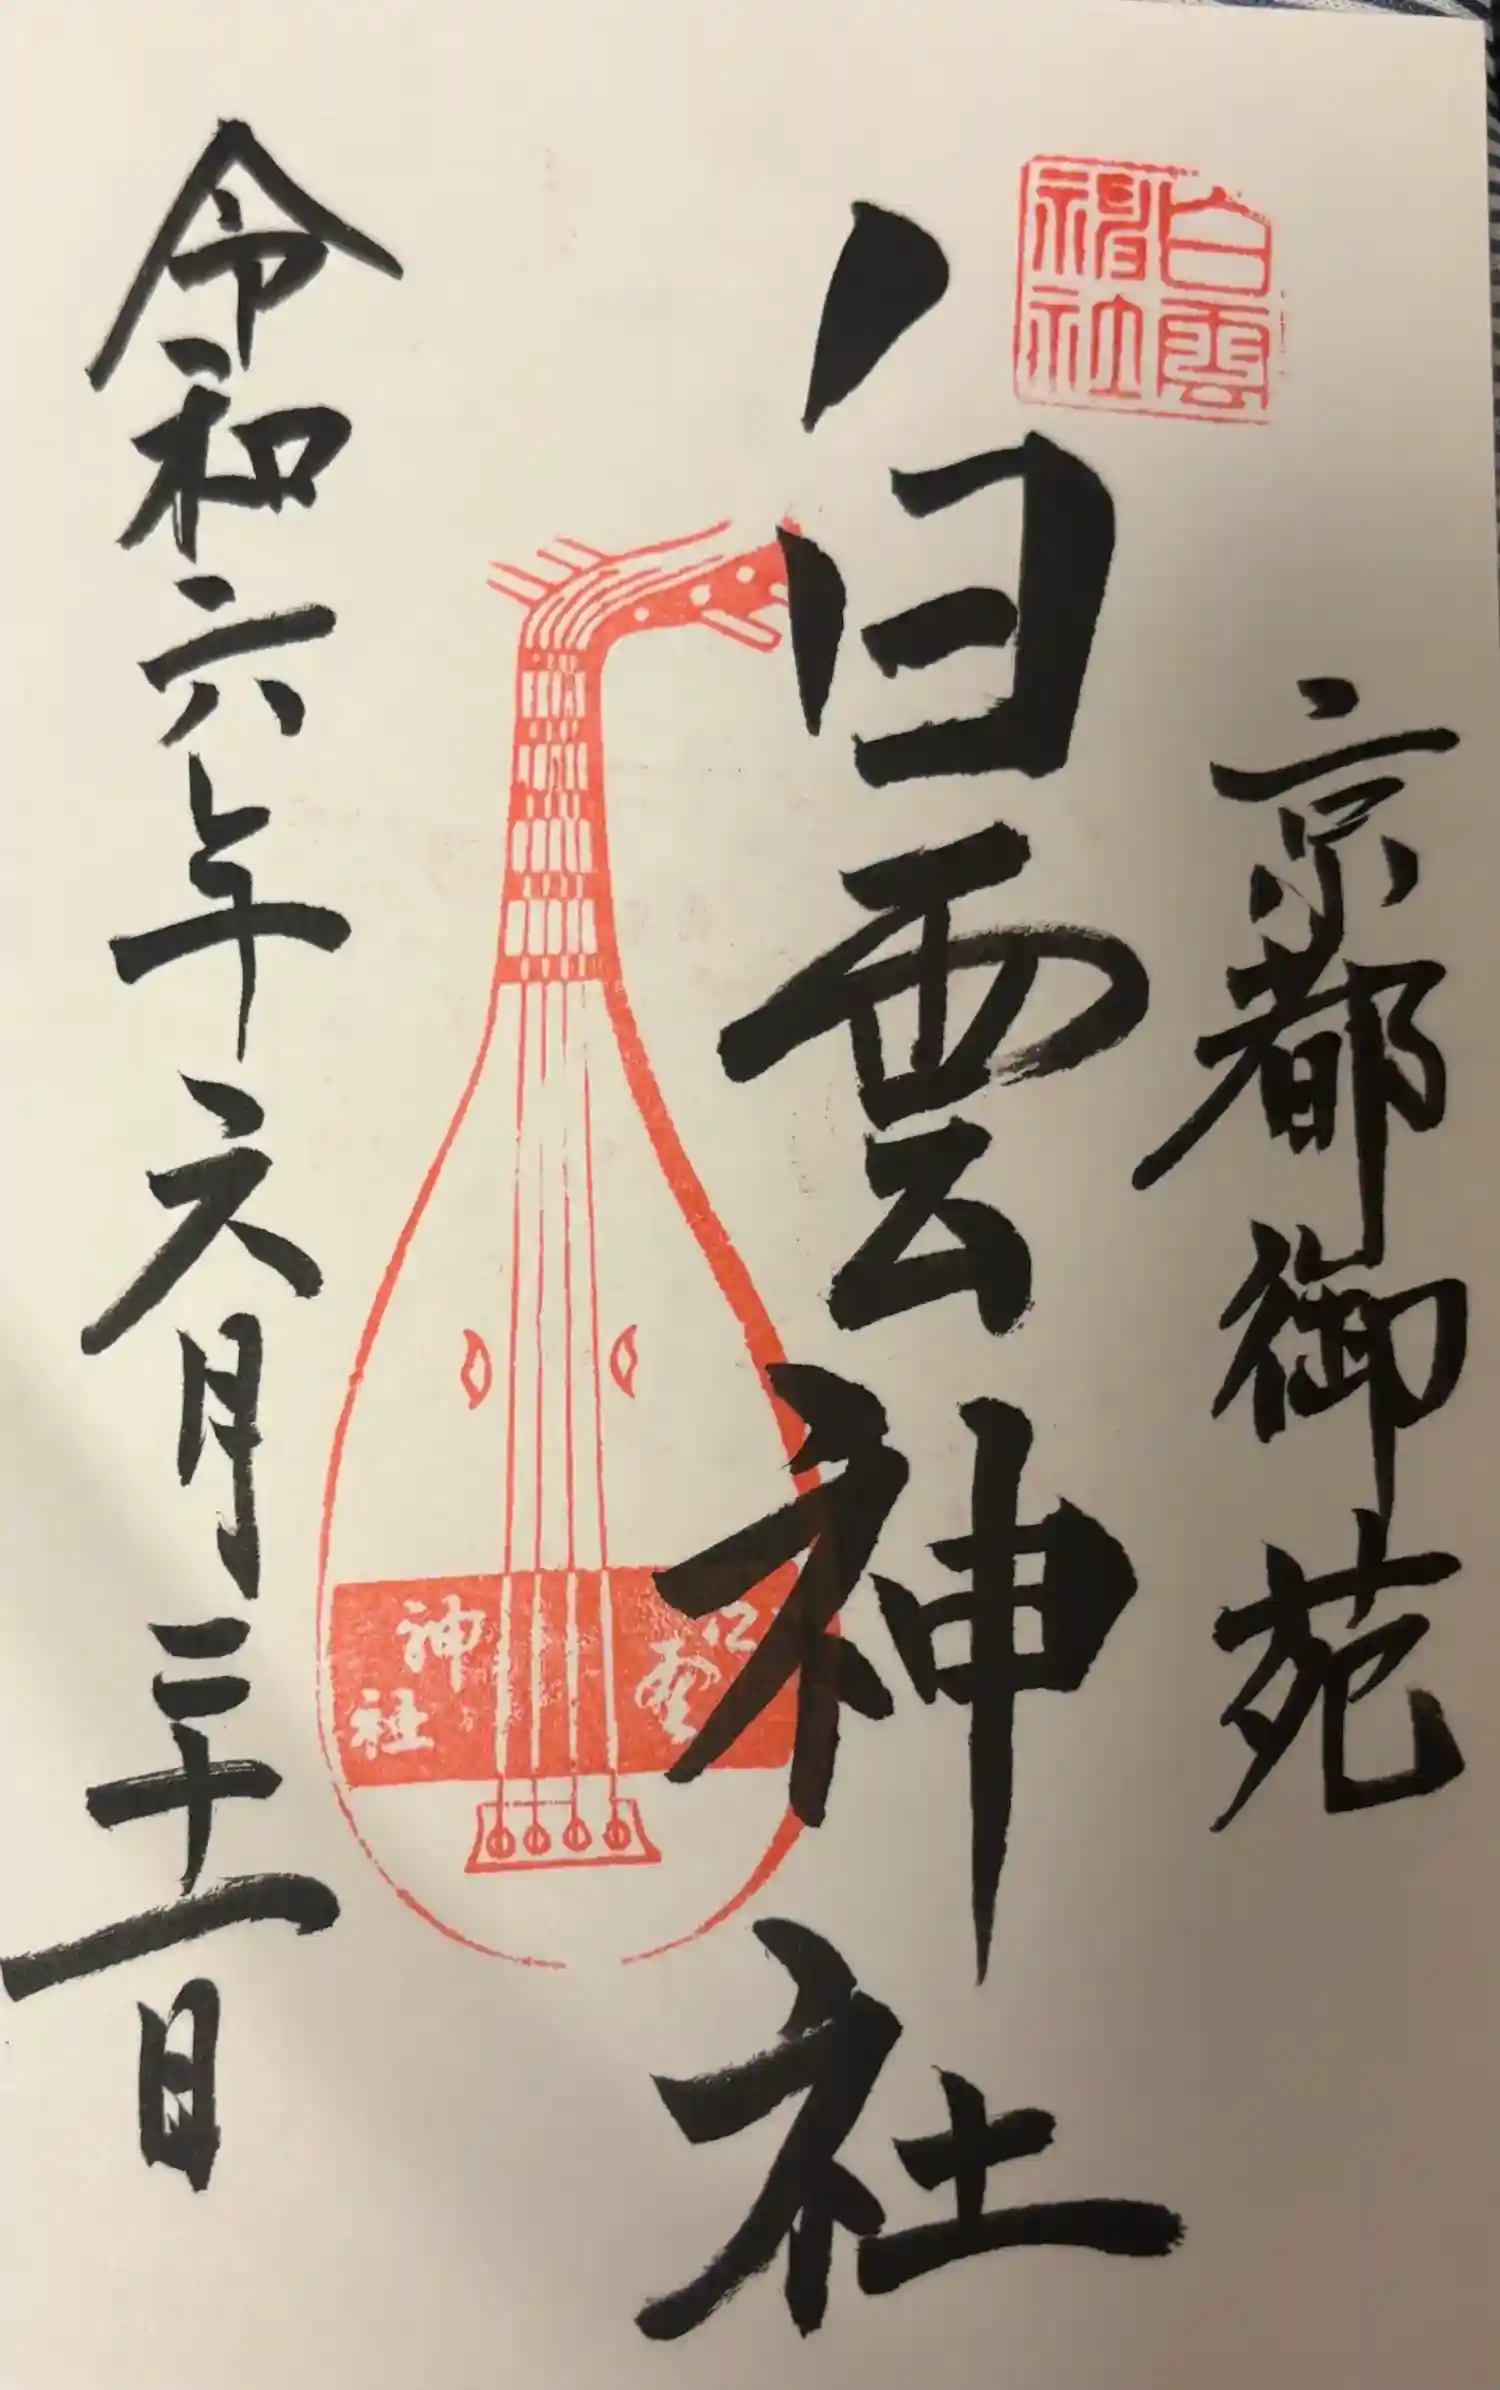 京都御苑
白雲
神社
白雲神社
白雲
神社
令和六年六月二十一日